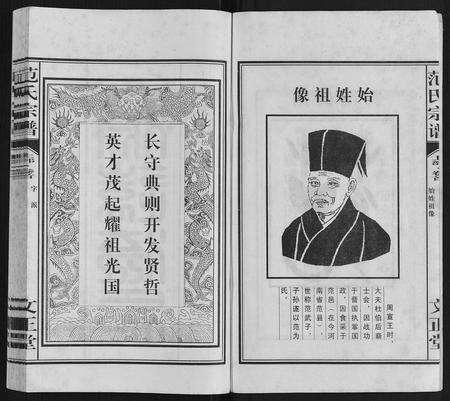 始姓祖像
周宣王时，
大夫杜伯后裔
士会，因战功
于晋国执掌国
政，因食采于
范邑（在今河
南省范县），
世称范武子，
子孙遂以范为
氏。
范氏宗谱
始姓祖像
文正堂
长守典则开发贤哲
英才茂起耀祖光国
范氏宗谱
字派
文正堂